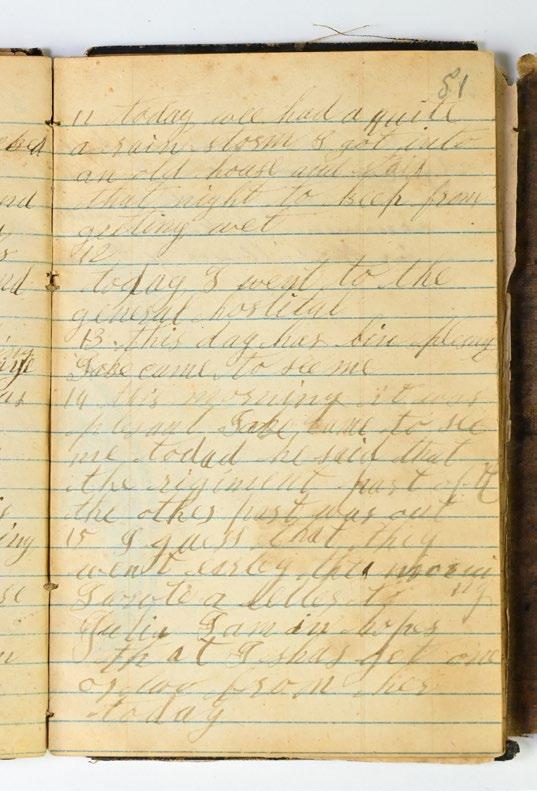 81
11 today we had a quite
a rain storm I got into
an old house and stay
that night to keep from
getting wet
12
today I went to the
general hostital
13 this day has bin
came to see me
14 this morning it was
plesant came to see
me today he said that
the rigiment part of it
the other part was out
15 I guess that they
went earley this
I wrote a letter to
Julia I am in hopes
that I shal get one
or two from her
today